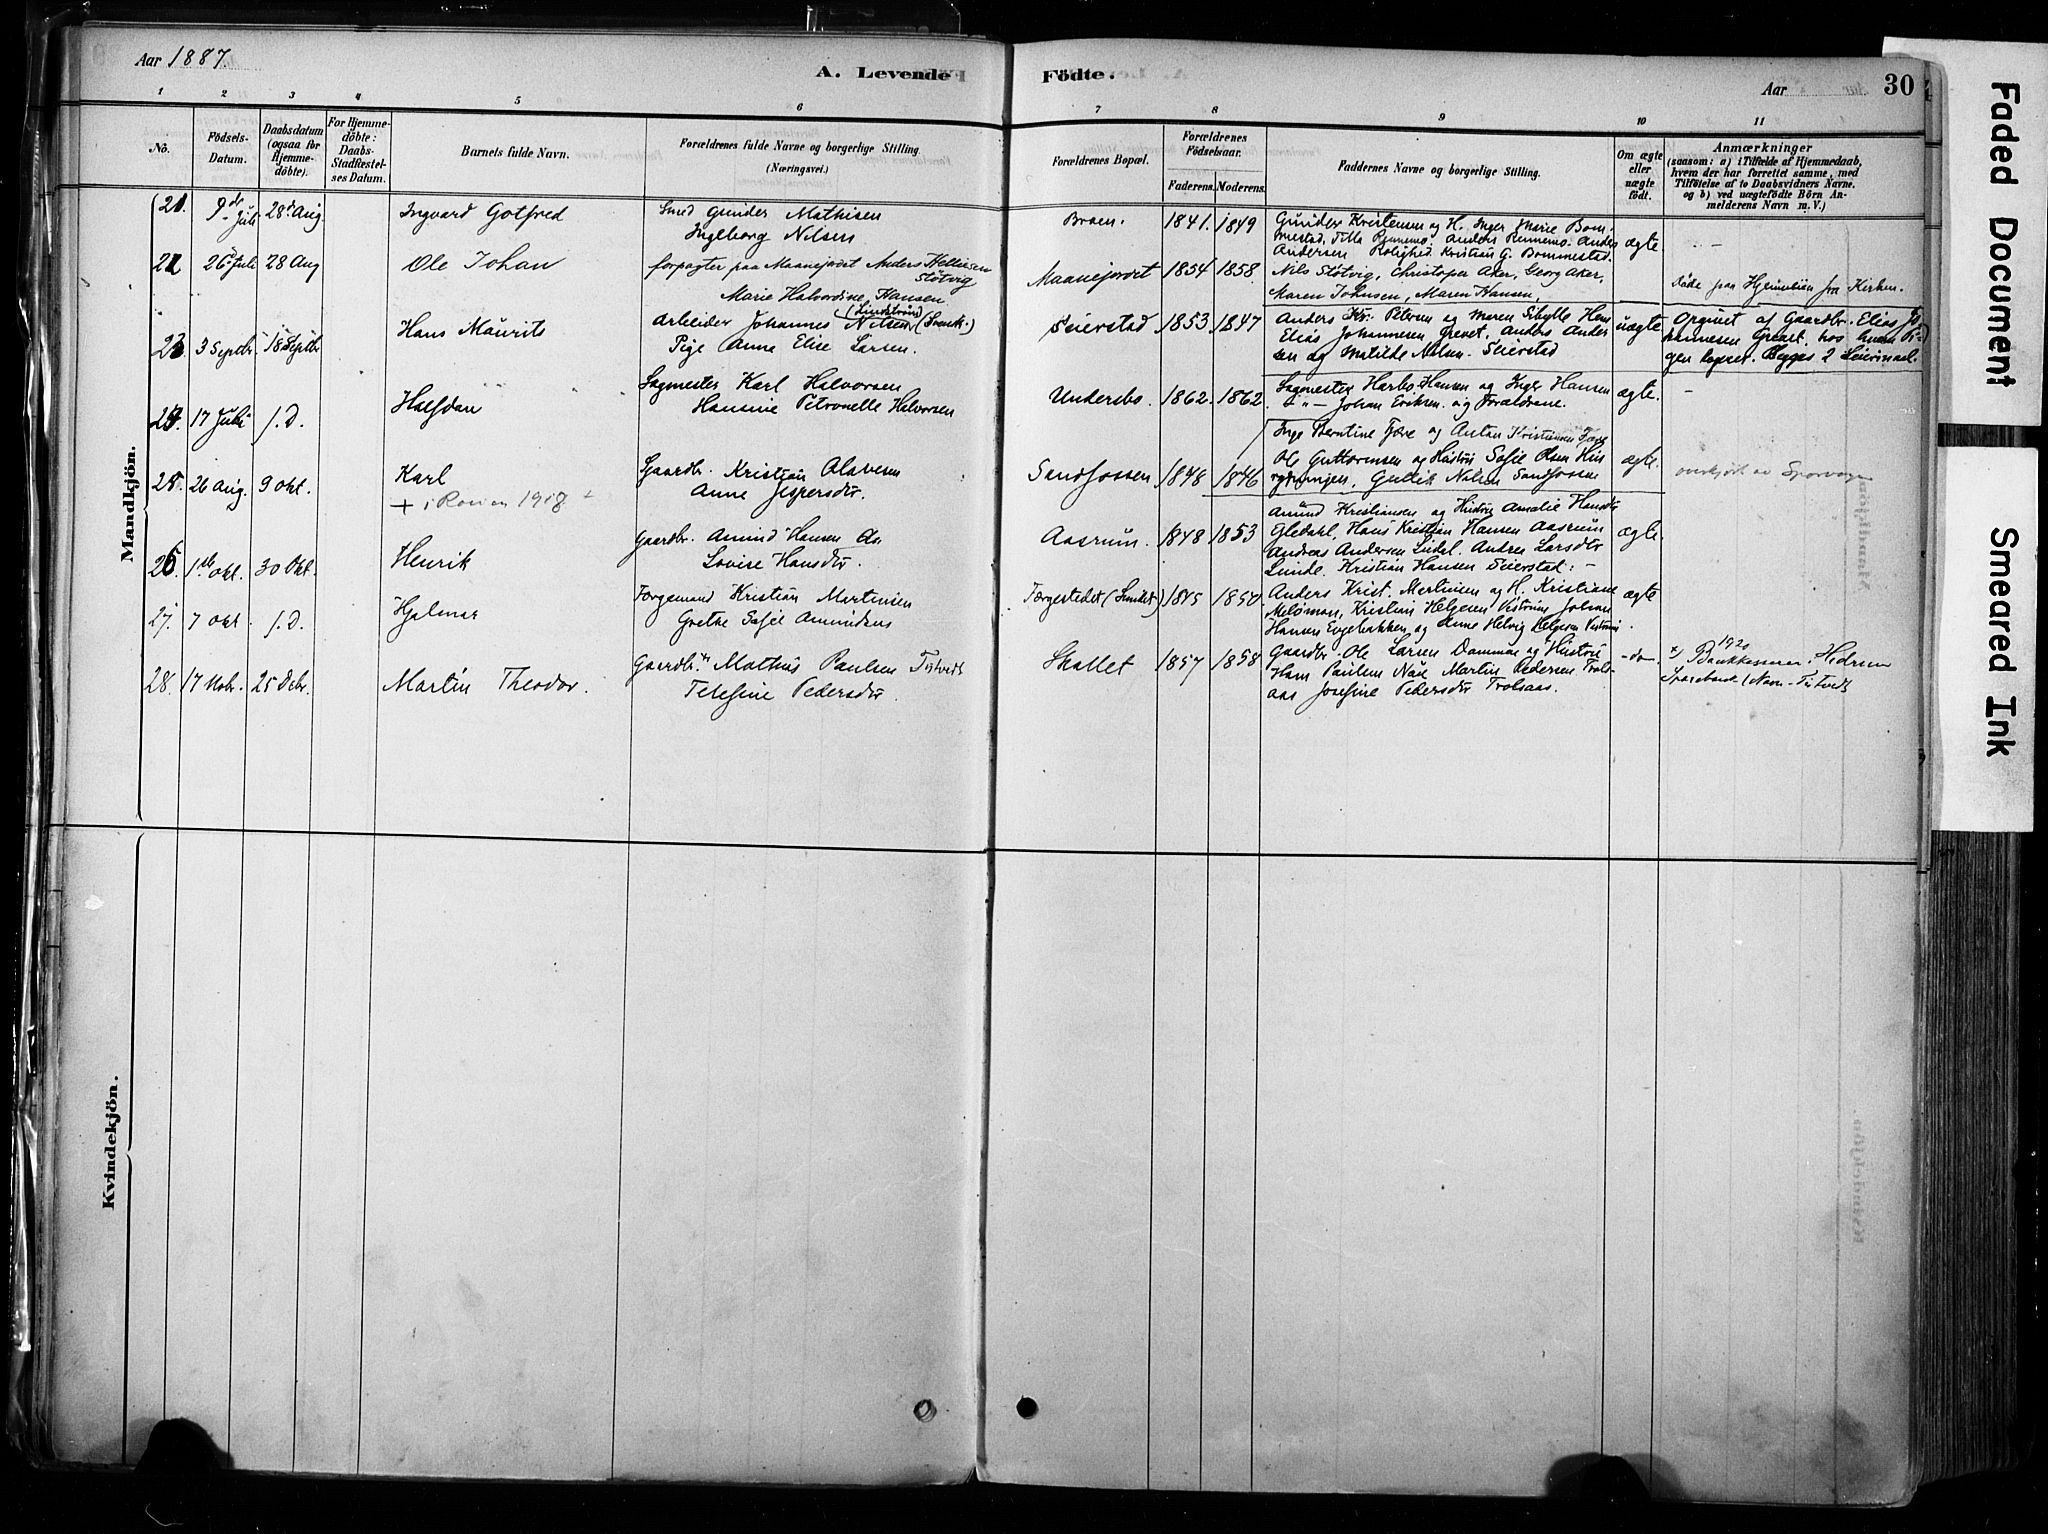 Aar 1887.
A. Levende
Födte.
Aar
30
Faded Document
Smeared Ink
1 2 3 4 5 6 7 8 9 10 11
No.
Födsels-
Datum.
Daabsdatum
(ogsaa for
Hjemme-
döbte).
For Hjemme-
döbte:
Daabs-
Stadfæstel-
ses Datum.
Barnets fulde Navn.
Forældrenes fulde Navne og borgerlige Stilling.
(Næringsvei.)
Forældrenes Bopæl.
Forældrenes
Födselsaar.
Faderens. Moderens.
Faddernes Navne og borgerlige Stilling.
Om ægte
eller
uægte
födt.
Anmærkninger
(saasom: a) i Tilfælde af Hjemmedaab,
hvem der har forrettet samme, med
Tilföielse af to Daabsvidners Navne.
og b) ved uægtefödte Börn An-
melderens Navn m. V.)
Mandkjön.
21. 9de Juli 28de Aug. Ingvard Gotfred
Smed Gunder Mathisen
Ingeborg Nilsen
Broen. 1841. 1849
Gunder Kristensen og H. Inger Marie Bom-
mestad. Anders Rennemo. Anders
Andersen Rolighed. Kristian G. Bommestad.
ægte
22 26 Juli 28 Aug Ole Johan
forpagter paa Maanejordet Anders Hellesen
Støtvig
Marie Halvordine Hansen.
Maanejordet 1854 1858.
Nils Støtvig, Christopher Aker, Georg Aker,
Maren Johnsen, Maren Hansen,
Døde paa Hjemveien fra Kirken.
23 3 Septbr 18 Septbr Hans Maurits
Arbeider Johannes Nilsen (Lindström) (Svensk.)
Pige Anne Elise Larsen.
Seierstad 1853 1847
Anders Kr. Petersen og Maren Sibylle Hans
Elias Johannesen Grevet, Anders Ander
sen og Matilde Nilsen Seierstad
uægte
Opgivet af Gaardbr. Elias Jo-
hannesen Grevet, hos hvem Pi-
gen logerer. Begges 2 Leiermaal.
24. 17 Juli s.D. Halfdan
Sagmester Karl Halvorsen
Hansine Petronelle Halvorsen
Undersbo. 1862. 1862.
Sagmester Harbo Hansen og Inger Hansen
-"- Johan Eriksen og Forældrene.
ægte.
25. 26 Aug. 9 Okt. Karl
+ i 1918 +
Gaardbr. Kristian Olavesen
Anne Jespersdtr.
Sandfossen 1848 1846
Inge Berntine Fjære og Anton Kristiansen Fjære
Ole Guttormsen og Hustru Sofie Olsen
Nilsen Sandfossen
ægte.
overkjørt av Sporvogn
26. 1ste Okt. 30 Okt. Henrik
Gaardbr. Amund Hansen As.
Lovise Hansdtr.
Aasrum. 1848 1853
Amund Kristiansen og Hustru Amalie Hansdtr
Gledahl, Hans Kristian Hansen Aasrum
Andreas Andersen Lindal. Andrea Larsdtr
Lunde. Kristian Hansen Seierstad: -
ægte.
27. 7 Okt s.D. Hjalmar
Færgemand Kristian Mortensen
Grethe Sofie Amundsen
Færgestedet (Sundet) 1845 1850
Anders Krist. Martinsen og H. Kristiane
Meløman, Kristian Helgesen Vestrum Johan
Hansen Engebakken og Anne Helvig Helgesen Vestrum.
ægte
28. 17 Nobr. 25 Debr. Martin Theodor.
Gaardbr. Mathias Paulsen Tistvedt
Telefine Pedersdtr.
Skallet 1857 1858
Gaardbr. Ole Larsen Dammen og Hustru
Hans Paulsen Næs Martin Pedersen Trols-
aas Josefine Pedersdtr Trolsaas.
-do-
x) 1920 Bankkasserer Hedrum
Sparebank (Navn Tistvedt
Kvindekjön.